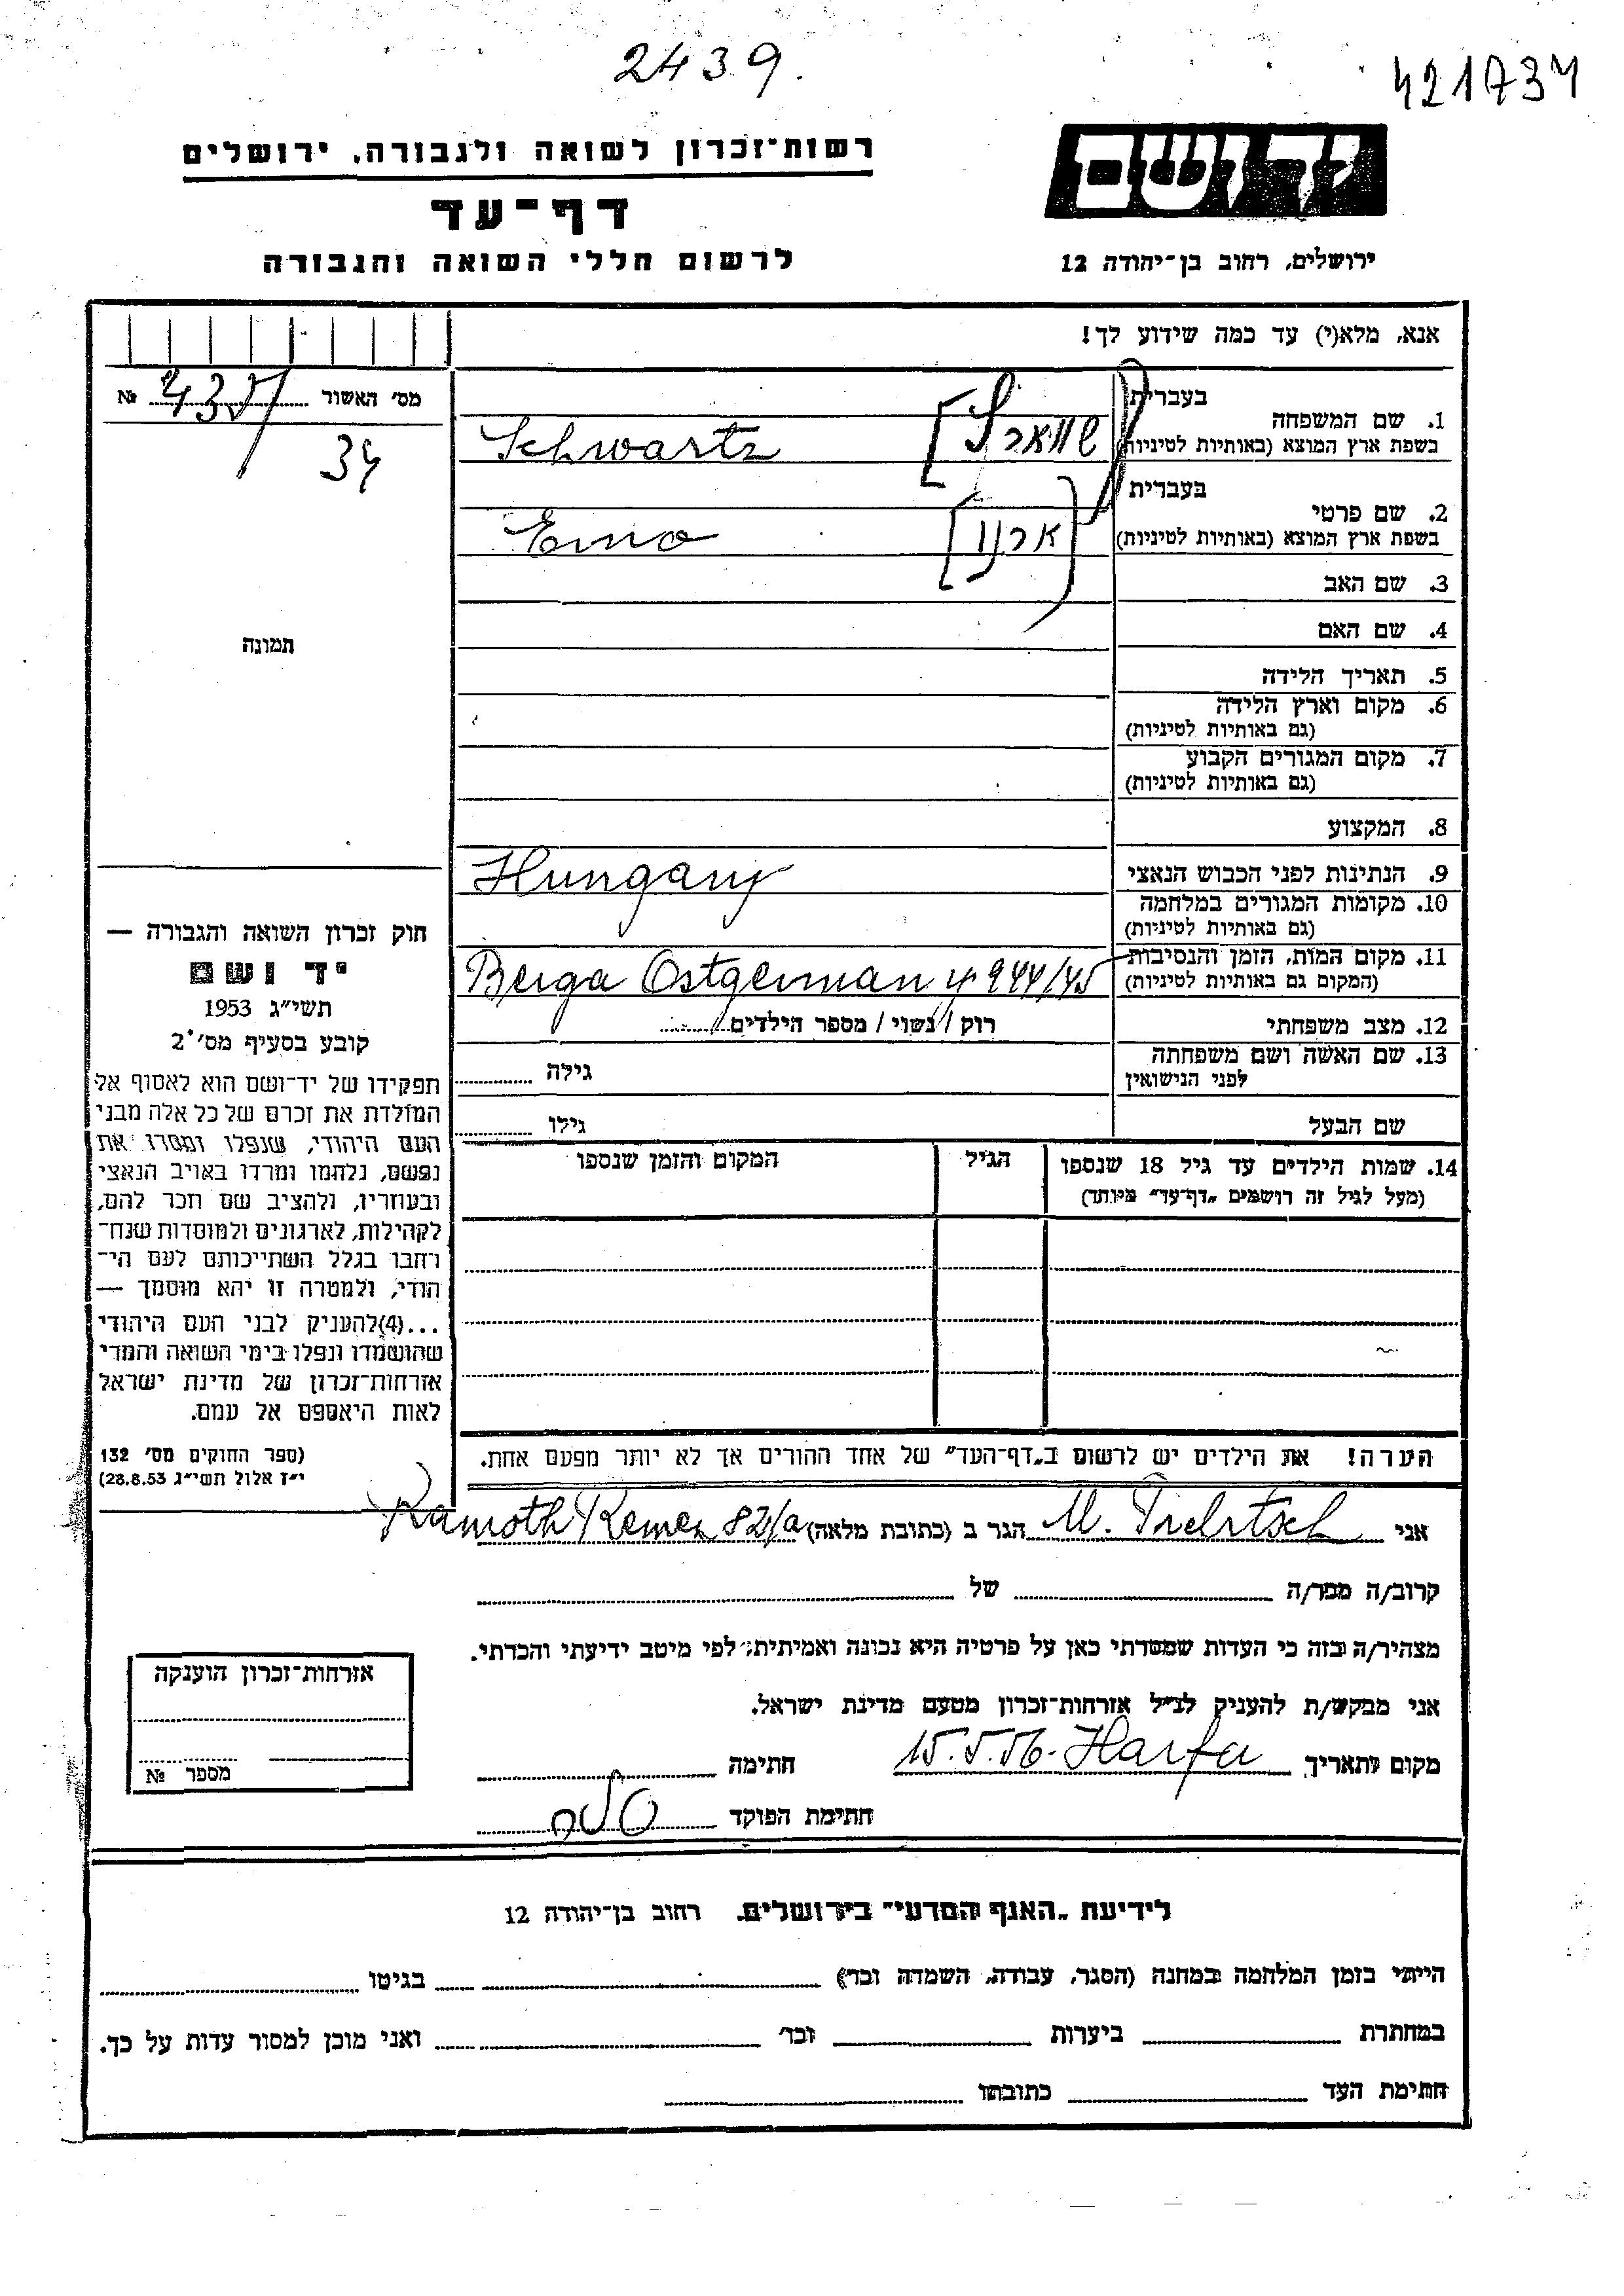 2439.
421734
רשות־זכרון לשואה ולגבורה, ירושלים
יד ושם
דף־עד
לרשום חללי השואה והגבורה
ירושלים, רחוב בן־יהודה 12
אנא, מלא(י) עד כמה שידוע לך!
מס׳ האשור № 4357
34
תמונה
1. שם המשפחה
בעברית
שווארץ
בשפת ארץ המוצא (באותיות לטיניות)
Schwartz
2. שם פרטי
בעברית
ארנו
בשפת ארץ המוצא (באותיות לטיניות)
Erno
3. שם האב
4. שם האם
5. תאריך הלידה
6. מקום וארץ הלידה
(גם באותיות לטיניות)
7. מקום המגורים הקבוע
(גם באותיות לטיניות)
8. המקצוע
9. הנתינות לפני הכבוש הנאצי
Hungary
10. מקומות המגורים במלחמה
(גם באותיות לטיניות)
11. מקום המות, הזמן והנסיבות
(המקום גם באותיות לטיניות)
Berga Ostgerman 944/45
12. מצב משפחתי
רוק / נשוי / מספר הילדים
13. שם האשה ושם משפחתה
לפני הנישואין
גילה
שם הבעל
גילו
14. שמות הילדים עד גיל 18 שנספו
(מעל לגיל זה רושמים „דף־עד״ מיוחד)
הגיל
המקום והזמן שנספו
הערה! את הילדים יש לרשום ב„דף־העד״ של אחד ההורים אך לא יותר מפעם אחת.
חוק זכרון השואה והגבורה —
יד ושם
תשי״ג 1953
קובע בסעיף מס׳ 2
תפקידו של יד־ושם הוא לאסוף אל
המולדת את זכרם של כל אלה מבני
העם היהודי, שנפלו ומסרו את
נפשם, נלחמו ומרדו באויב הנאצי
ובעוזריו, ולהציב שם וזכר להם,
לקהילות, לארגונים ולמוסדות שנח־
רבו בגלל השתייכותם לעם הי־
הודי, ולמטרה זו יהא מוסמך —
...(4) להעניק לבני העם היהודי
שהושמדו ונפלו בימי השואה והמרי
אזרחות־זכרון של מדינת ישראל
לאות היאספם אל עמם.
(ספר החוקים מס׳ 132
י״ז אלול תשי״ג 28.8.53)
אני M. הגר ב (כתובת מלאה) Ramoth Remez 82/a
קרוב/ה מכר/ה של
מצהיר/ה בזה כי העדות שמסרתי כאן על פרטיה היא נכונה ואמיתית, לפי מיטב ידיעתי והכרתי.
אני מבקש/ת להעניק לנ״ל אזרחות־זכרון מטעם מדינת ישראל.
מקום ותאריך 15.5.56. Haifa חתימה
חתימת הפוקד
אזרחות־זכרון הוענקה
מספר №
לידיעת „האגף המדעי״ בירושלים, רחוב בן־יהודה 12
הייתי בזמן המלחמה במחנה (הסגר, עבודה, השמדה וכד׳) בגיטו
במחתרת ביערות וכד׳ ואני מוכן למסור עדות על כך.
חתימת העד כתובתו